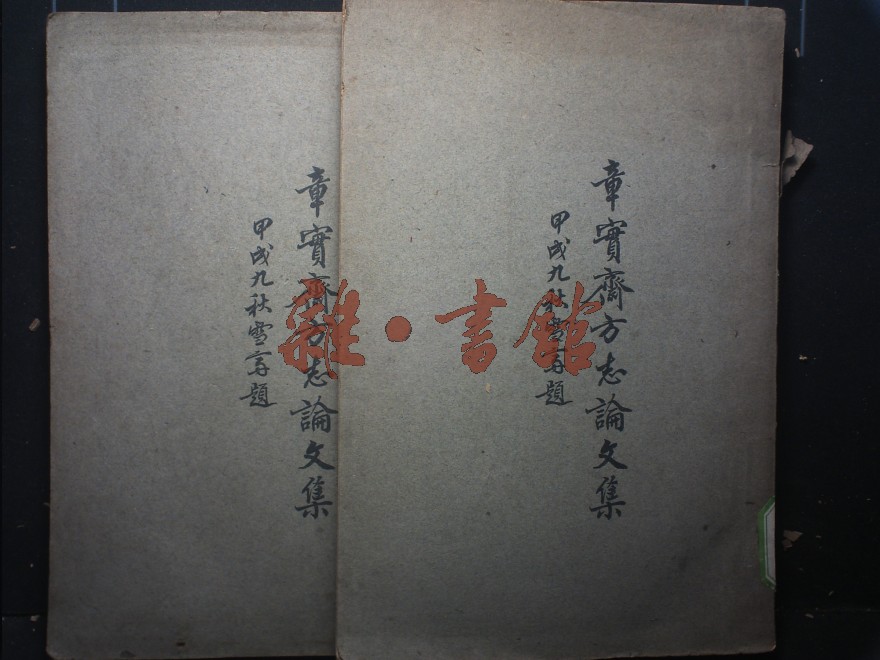 章實齋方志論文集
甲戌九秋雪
題
章實齋方志論文集
甲戌九秋雪
題
雜·書館